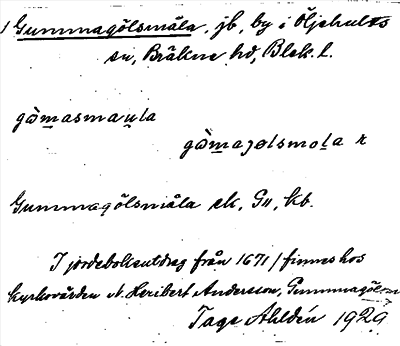 Gummagölsmåla, jb, by i Öljehults
sn, Bräkne hd, Blek. l.
gòmasmaula
gòmagølsmola r
Gummagölsmåla ek, G11, kb.
I jordeboksutdrag från 1671 / finnes hos
kyrkovärden N. Heribert Andersson, Gummagölsm
Tage Ahldén 1929